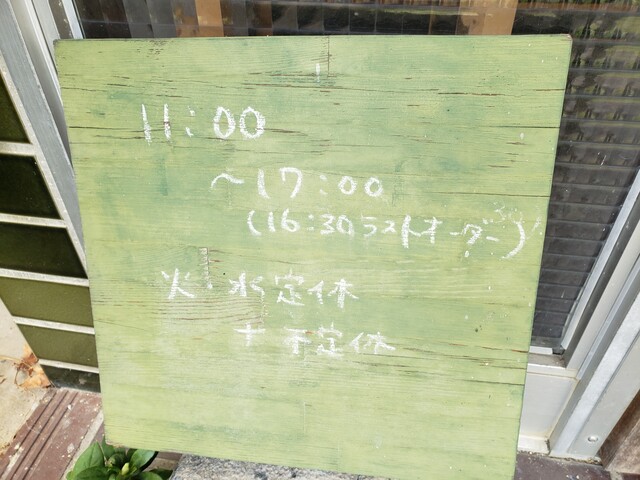 11:00
~17:00
(16:30ラストオーダー)
火・水定休
+不定休